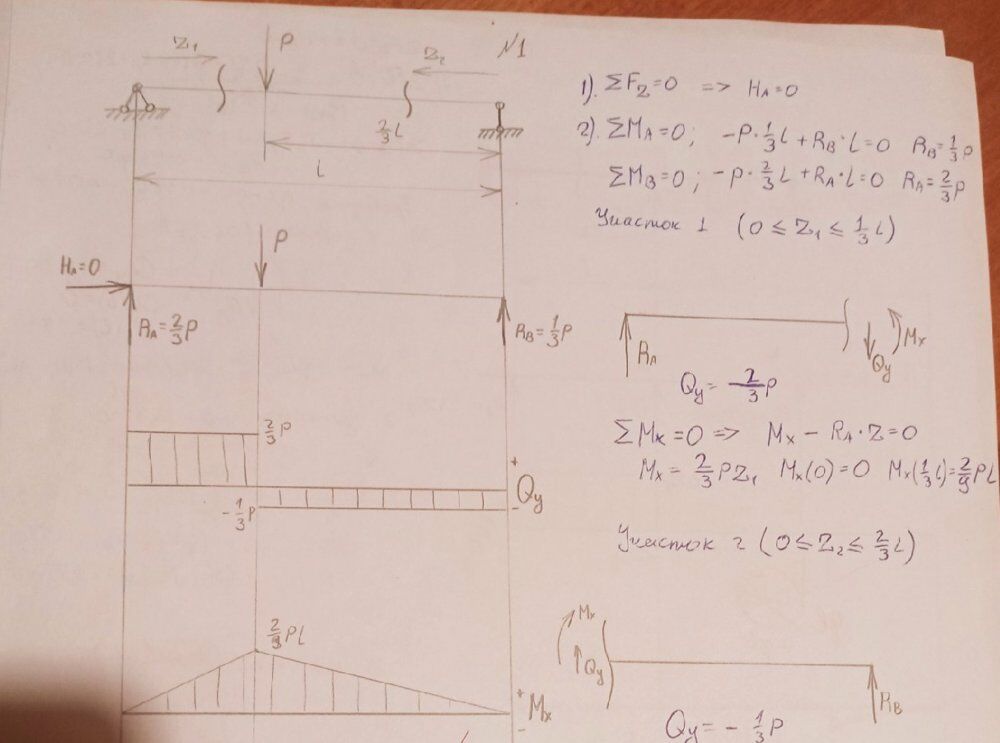 Z₁
P
Z₂
N1
2/3 L
L
P
Hₐ=0
Rₐ=2/3P
R_B=1/3P
2/3P
+
Qy
-
-1/3P
2/9PL
+
Mx
-
1). ΣF_Z=0 => Hₐ=0
2). ΣMₐ=0; -P·1/3L+R_B·L=0 R_B=1/3P
ΣM_B=0; -P·2/3L+Rₐ·L=0 Rₐ=2/3P
Участок 1 (0≤Z₁≤1/3L)
Rₐ
Qy
Mx
Qy=2/3P
ΣMx=0=> Mx-Rₐ·Z=0
Mx=2/3PZ₁ Mx(0)=0 Mx(1/3L)=2/9PL
Участок 2 (0≤Z₂≤2/3L)
Mx
Qy
R_B
Qy=-1/3P